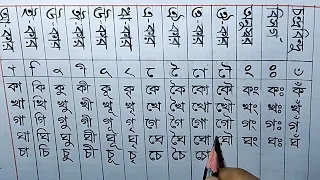 আ-কার ই-কার ঈ-কার উ-কার ঊ-কার ঋ-কার এ-কার ঐ-কার ও-কার ঔ-কার অনুস্বার বিসর্গ চন্দ্রবিন্দু
া ি ী ু ূ ৃ ে ৈ ো ৌ ং ঃ ঁ
কা কি কী কু কূ কৃ কে কৈ কো কৌ কং কঃ কঁ
খা খি খী খু খূ খৃ খে খৈ খো খৌ খং খঃ খঁ
গা গি গী গু গূ গৃ গে গৈ গো গৌ গং গঃ গঁ
ঘা ঘি ঘী ঘু ঘূ ঘৃ ঘে ঘৈ ঘো ঘৌ ঘং ঘঃ ঘঁ
চা চি চী চু চূ চৃ চে চৈ চো